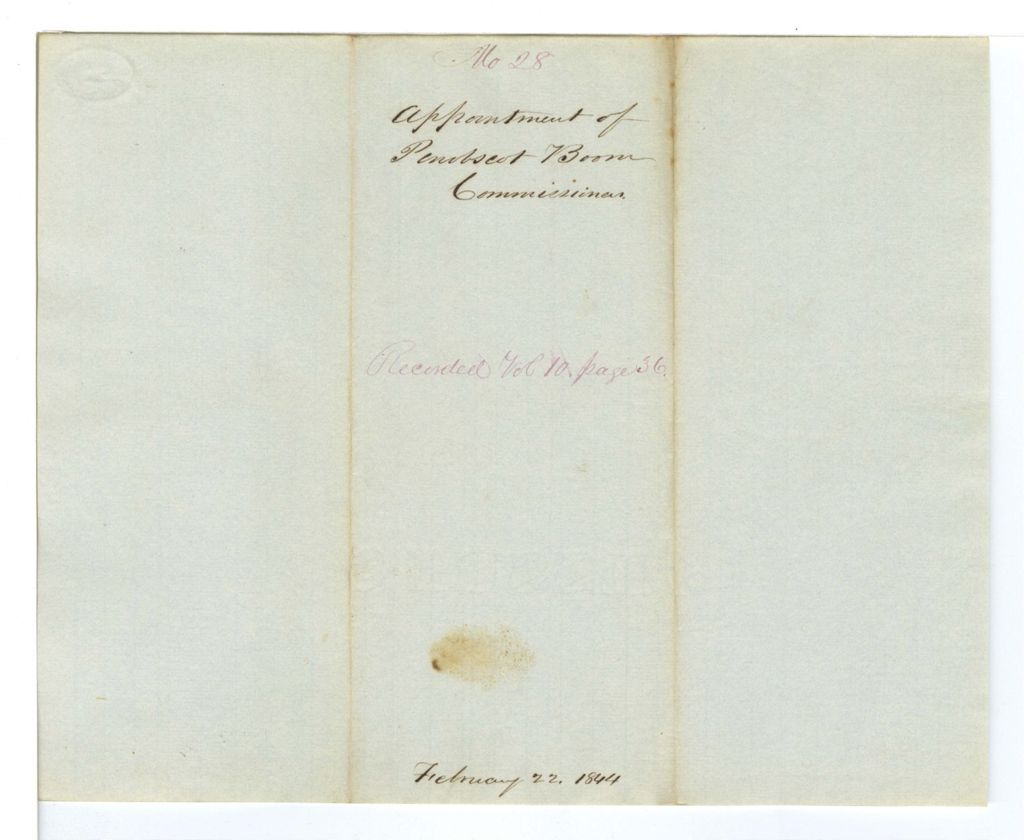 No 28
Appointment of
Penobscot Boom
Commissioner.
Recorded Vol 10. page 36.
February 22. 1844